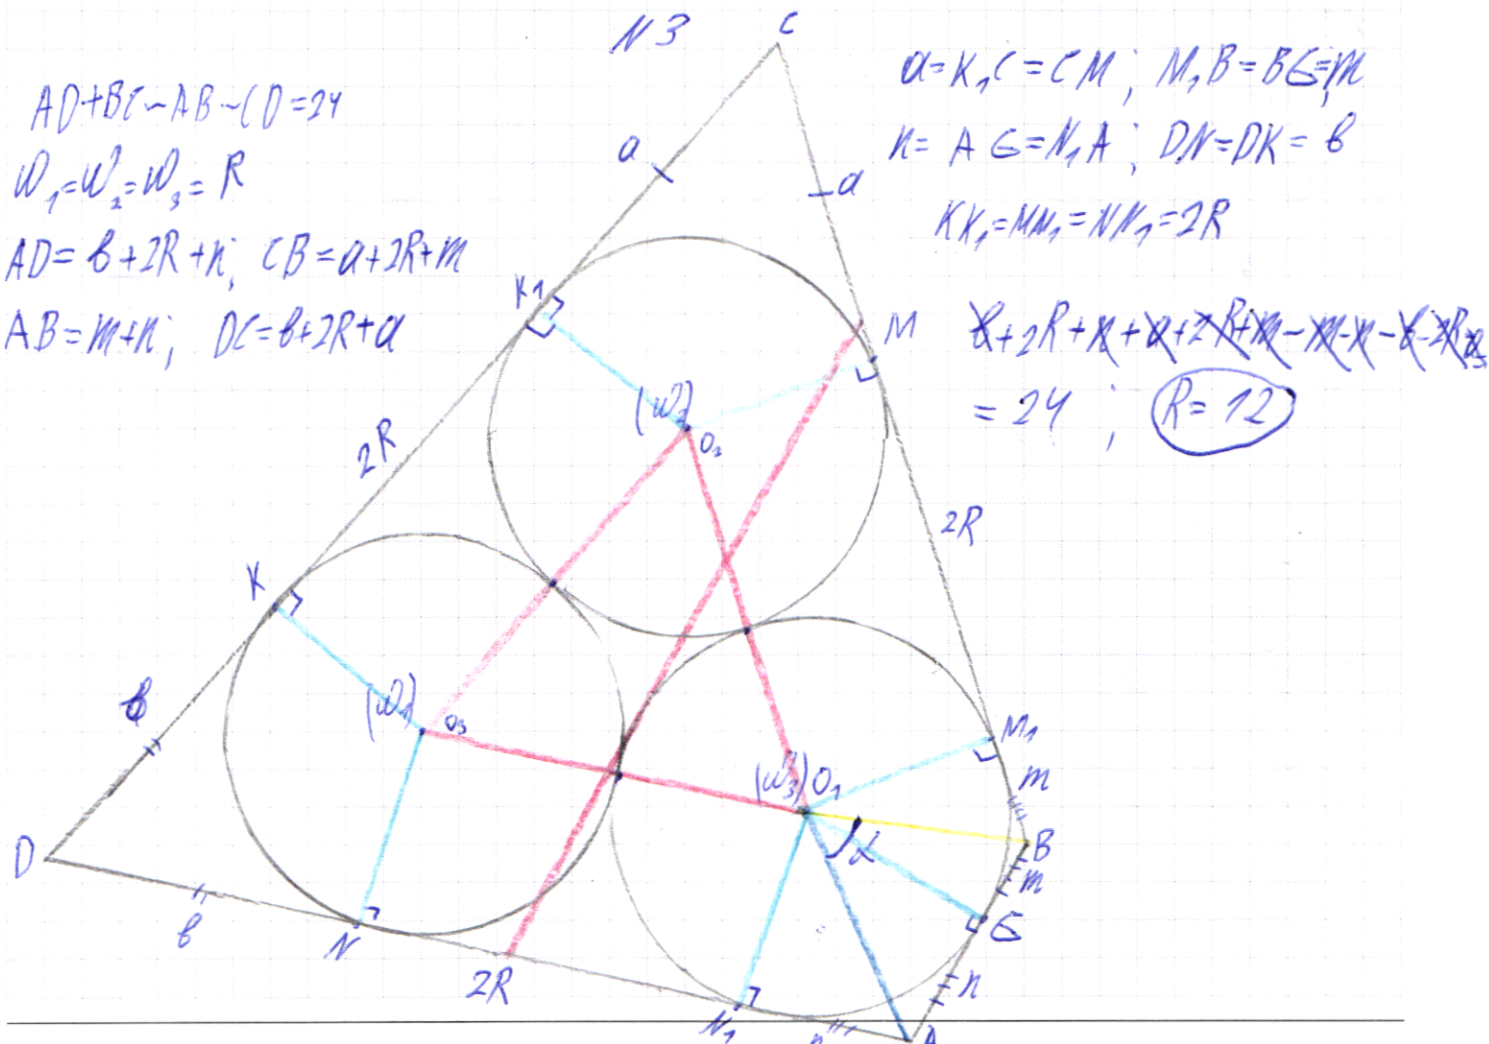 N3
AD+BC-AB-CD=24
W₁=W₂=W₃=R
AD=в+2R+n; CB=a+2R+m
AB=m+n; DC=в+2R+a
a=K₁C=CM; M₁B=BG=m;
n=AG=N₁A; DN=DK=в
KK₁=MM₁=NN₁=2R
в+2R+n+a+2R+m-m-n-в-2R-a
=24; R=12
C
a
a
K1
M
(W₂)
O₂
2R
2R
K
в
(W₁)
O₃
(W₃)
O₁
M₁
m
D
B
α
m
в
N
G
2R
n
N₁
n
A